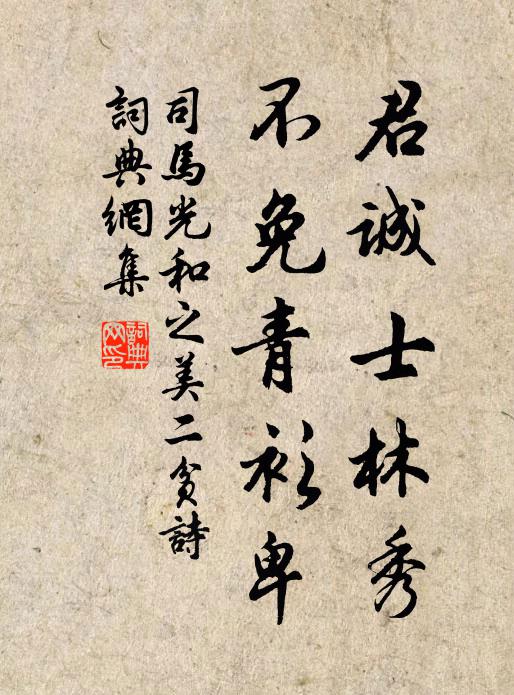 君誠士林秀
不免青衫卑
司馬光和之美二貧詩
詞典網集
詞典網印